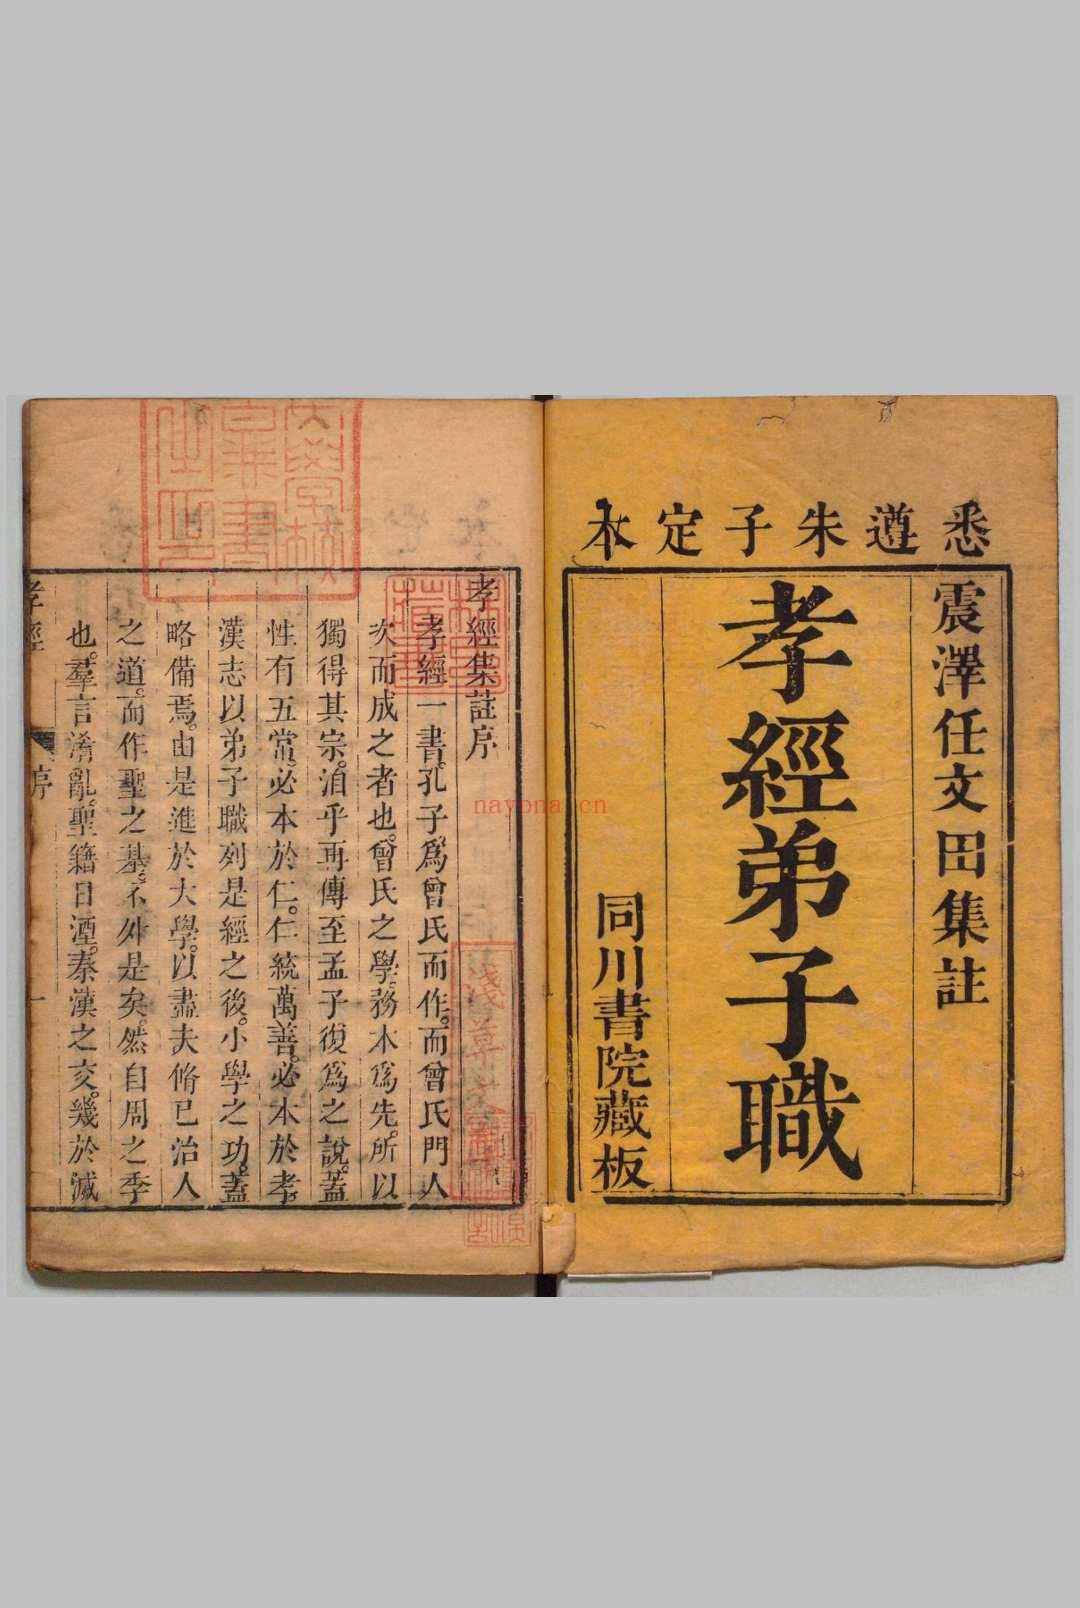 悉遵朱子定本
震澤任文田集註
孝經弟子職
同川書院藏板
孝經集註序
孝經一書。孔子爲曾氏而作。而曾氏門人
次而成之者也。曾氏之學。務本爲先。所以
獨得其宗。洎乎再傳至孟子復爲之說。蓋
性有五常。必本於仁。仁統萬善。必本於孝。
漢志以弟子職列是經之後。小學之功。蓋
略備焉。由是進於大學。以盡夫脩已治人
之道。而作聖之基。不外是矣。然自周之季
也。羣言淆亂。聖籍日湮。秦漢之交。幾於滅
孝經
序
一
nayona.cn